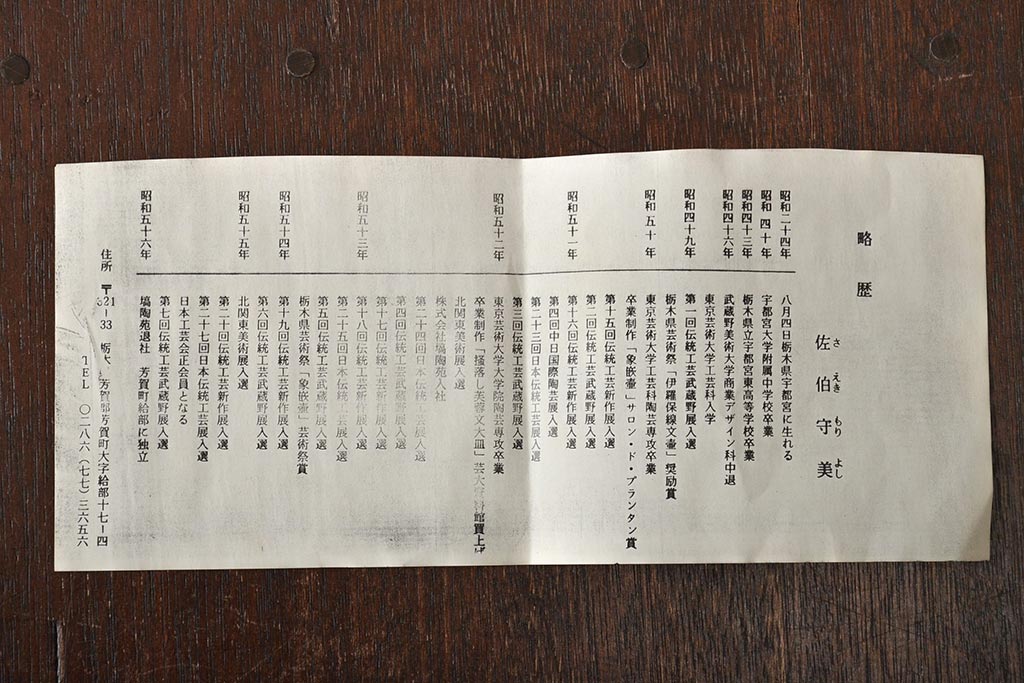 略歴
佐伯守美
さえきもりよし
昭和二十四年 八月四日栃木県宇都宮に生れる
昭和四十年 宇都宮大学附属中学校卒業
昭和四十三年 栃木県立宇都宮東高等学校卒業
昭和四十六年 武蔵野美術大学商業デザイン科中退
東京芸術大学工芸科入学
昭和四十九年 第一回伝統工芸武蔵野展入選
栃木県芸術祭「伊羅保線文壷」奨励賞
昭和五十年 東京芸術大学工芸科陶芸専攻卒業
卒業制作「象嵌壷」サロン・ド・プランタン賞
第十五回伝統工芸新作展入選
第二回伝統工芸武蔵野展入選
昭和五十一年 第十六回伝統工芸新作展入選
第四回中日国際陶芸展入選
第二十三回日本伝統工芸展入選
第三回伝統工芸武蔵野展入選
昭和五十二年 東京芸術大学大学院陶芸専攻卒業
卒業制作「掻落し芙蓉文大皿」芸大資料館買上げ
北関東美術展入選
株式会社塙陶苑入社
第二十四回日本伝統工芸展入選
第四回伝統工芸武蔵野展入選
第十七回伝統工芸新作展入選
昭和五十三年 第十八回伝統工芸新作展入選
第二十五回日本伝統工芸展入選
第五回伝統工芸武蔵野展入選
栃木県芸術祭「象嵌壷」芸術祭賞
昭和五十四年 第十九回伝統工芸新作展入選
第六回伝統工芸武蔵野展入選
昭和五十五年 北関東美術展入選
第二十回伝統工芸新作展入選
第二十七回日本伝統工芸展入選
日本工芸会正会員となる
第七回伝統工芸武蔵野展入選
昭和五十六年 塙陶苑退社 芳賀町給部に独立
住所 〒321-33 栃木 芳賀郡芳賀町大字給部十七-四
TEL 〇二八六(七七)三六五六